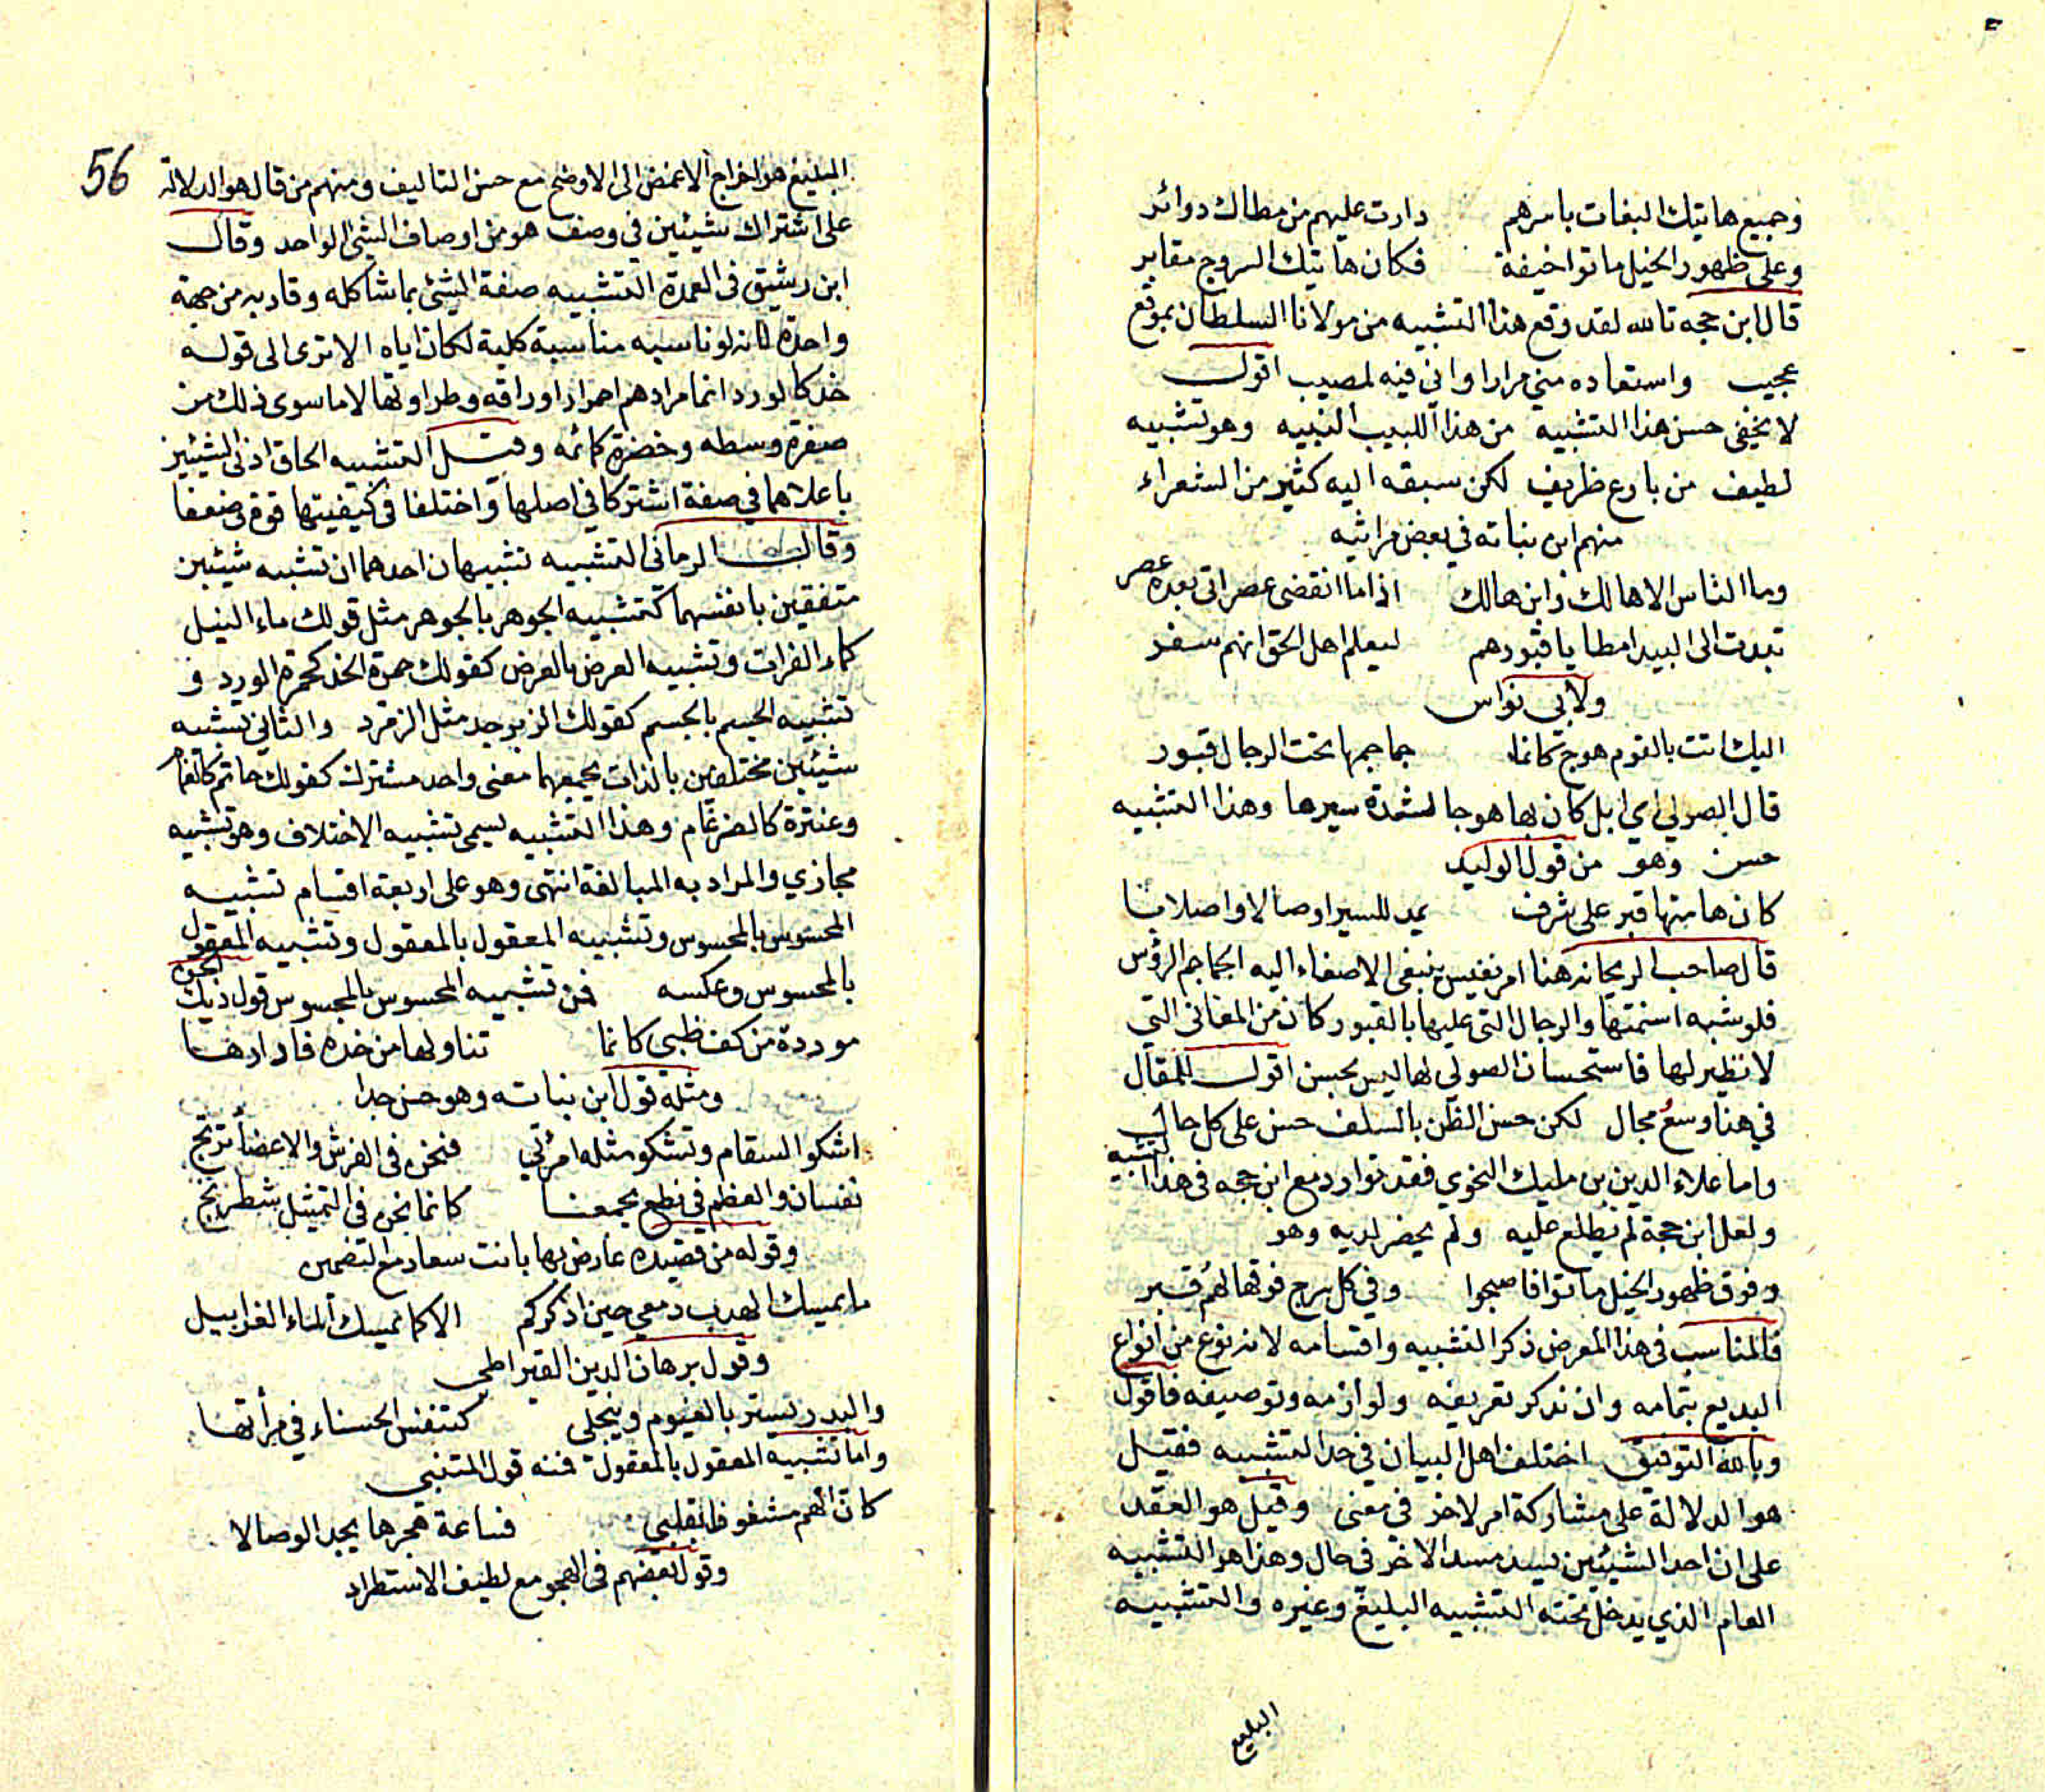 وجميع هاتيك البغات باسرهم دارت عليهم من مطاك دوائر
وعلى ظهور الخيل ماتوا خيفة فكان هاتيك السروج مقابر
قال ابن حجه تالله لقد وقع هذا التشبيه من مولانا السلطان بموقع
عجيب واستعاده مني مرارا واني فيه لمصيب اقول
لا يخفى حسن هذا التشبيه من هذا اللبيب النبيه وهو تشبيه
لطيف من بارع ظريف لكن سبقه اليه كثير من الشعراء
منهم ابن نباته في بعض مراثيه
وما الناس الا هالك وابن هالك اذا ما انقضى عصر اتى بعده عصر
تبدت الى البيدا مطايا قبورهم ليعلم اهل الحق انهم سفر
ولابي نواس
اليك اتت بالقوم هوج كانما جماجمها تحت الرحال قبور
قال الصولي اي ابل كان بها هوجا لشدة سيرها وهذا التشبيه
حسن وهو من قول الوليد
كان هامتها قبر على شرف يمد للسير اوصالا واصلابا
قال صاحب الريحانه هنا امر نفيس ينبغي الاصغاء اليه الجماجم الرؤس
فلو شبه اسنمتها والرحال التي عليها بالقبور كان من المعاني التي
لا نظير لها فاستحسان الصولي لها ليس بحسن اقول للمقال
في هنا وسع مجال لكن حسن الظن بالسلف حسن على كل حال
واما علاء الدين بن مليك النحوي فقد توارد مع ابن حجه في هذا التشبيه
ولعل ابن حجة لم يطلع عليه ولم يحضر لديه وهو
وفوق ظهور الخيل ماتوا فاصبحوا وفي كل سرج فوقها لهم قبر
فالمناسب في هذا المعرض ذكر التشبيه واقسامه لانه نوع من انواع
البديع بتمامه وان نذكر تعريفه ولوازمه وتوصيفه فاقول
وبالله التوفيق اختلف اهل البيان في حد التشبيه فقيل
هو الدلالة على مشاركة امر لاخر في معنى وقيل هو العقد
على ان احد الشيئين يسد مسد الاخر في حال وهذا هو التشبيه
العام الذي يدخل تحته التشبيه البليغ وغيره والتشبيه
البليغ
56
البليغ هو اخراج الاغمض الى الاوضح مع حسن التاليف ومنهم من قال هو الدلالة
على اشتراك شيئين في وصف هو من اوصاف الشي الواحد وقال
ابن رشيق في العمدة التشبيه صفة الشئ بما شاكله وقاربه من جهة
واحدة لانه لو ناسبه مناسبة كلية لكان اياه الا ترى الى قوله
خد كالورد انما مرادهم احمرار اوراقه وطراوتها لا ما سوى ذلك من
صفرة وسطه وخضرة كمائمه وقيل التشبيه الحاق ادنى الشيئين
باعلاهما في صفة اشتركا في اصلها واختلفا في كيفيتها قوة وضعفا
وقال الرماني التشبيه تشبيهان احدهما ان تشبه شيئين
متفقين بانفسهما كتشبيه الجوهر بالجوهر مثل قولك ماء النيل
كماء الفرات وتشبيه العرض بالعرض كقولك حمرة الخد كحمرة الورد و
تشبيه الجسم بالجسم كقولك الزبرجد مثل الزمرد والثاني تشبيه
شيئين مختلفين بالذات يجمعهما معنى واحد مشترك كقولك حاتم كالغمام
وعنترة كالضرغام وهذا التشبيه يسمى تشبيه الاختلاف وهو تشبيه
مجازي والمراد به المبالغة انتهى وهو على اربعة اقسام تشبيه
المحسوس بالمحسوس وتشبيه المعقول بالمعقول وتشبيه المعقول
بالمحسوس وعكسه فمن تشبيه المحسوس بالمحسوس قول ديك الجن
موردة من كف ظبي كانما تناولها من خده فادارها
ومثله قول ابن نباته وهو حسن جدا
اشكو السقام وتشكو مثله امرئتي فنحن في الفرش والاعضاء ترتج
نفسان والعظم في نطع يجمعنا كانما نحن في التمثيل شطرنج
وقوله من قصيدة عارض بها بانت سعاد مع التضمين
ما يمسك الهدب دمعي حين اذكركم الا كما يمسك الماء الغرابيل
وقول برهان الدين القيراطي
والبدر يستر بالغيوم وينجلي كتنفس الحسناء في مرأتها
واما تشبيه المعقول بالمعقول فمنه قول المتنبي
كان الهم مشغوف بقلبي فساعة هجرها يجد الوصالا
وقول بعضهم في الهجو مع لطيف الاستطراد